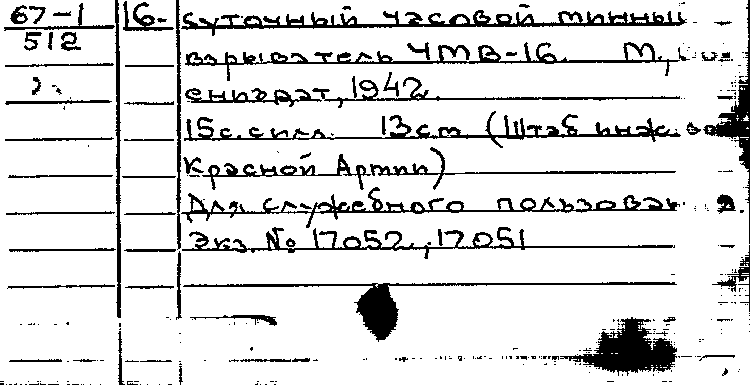 67-1 16- суточный часовой минный
512 взрыватель ЧМВ-16. М.,
ениздат, 1942.
15с. илл. 13см (Штаб инж.
Красной Армии)
Для служебного пользован
Экз. № 17052, 17051